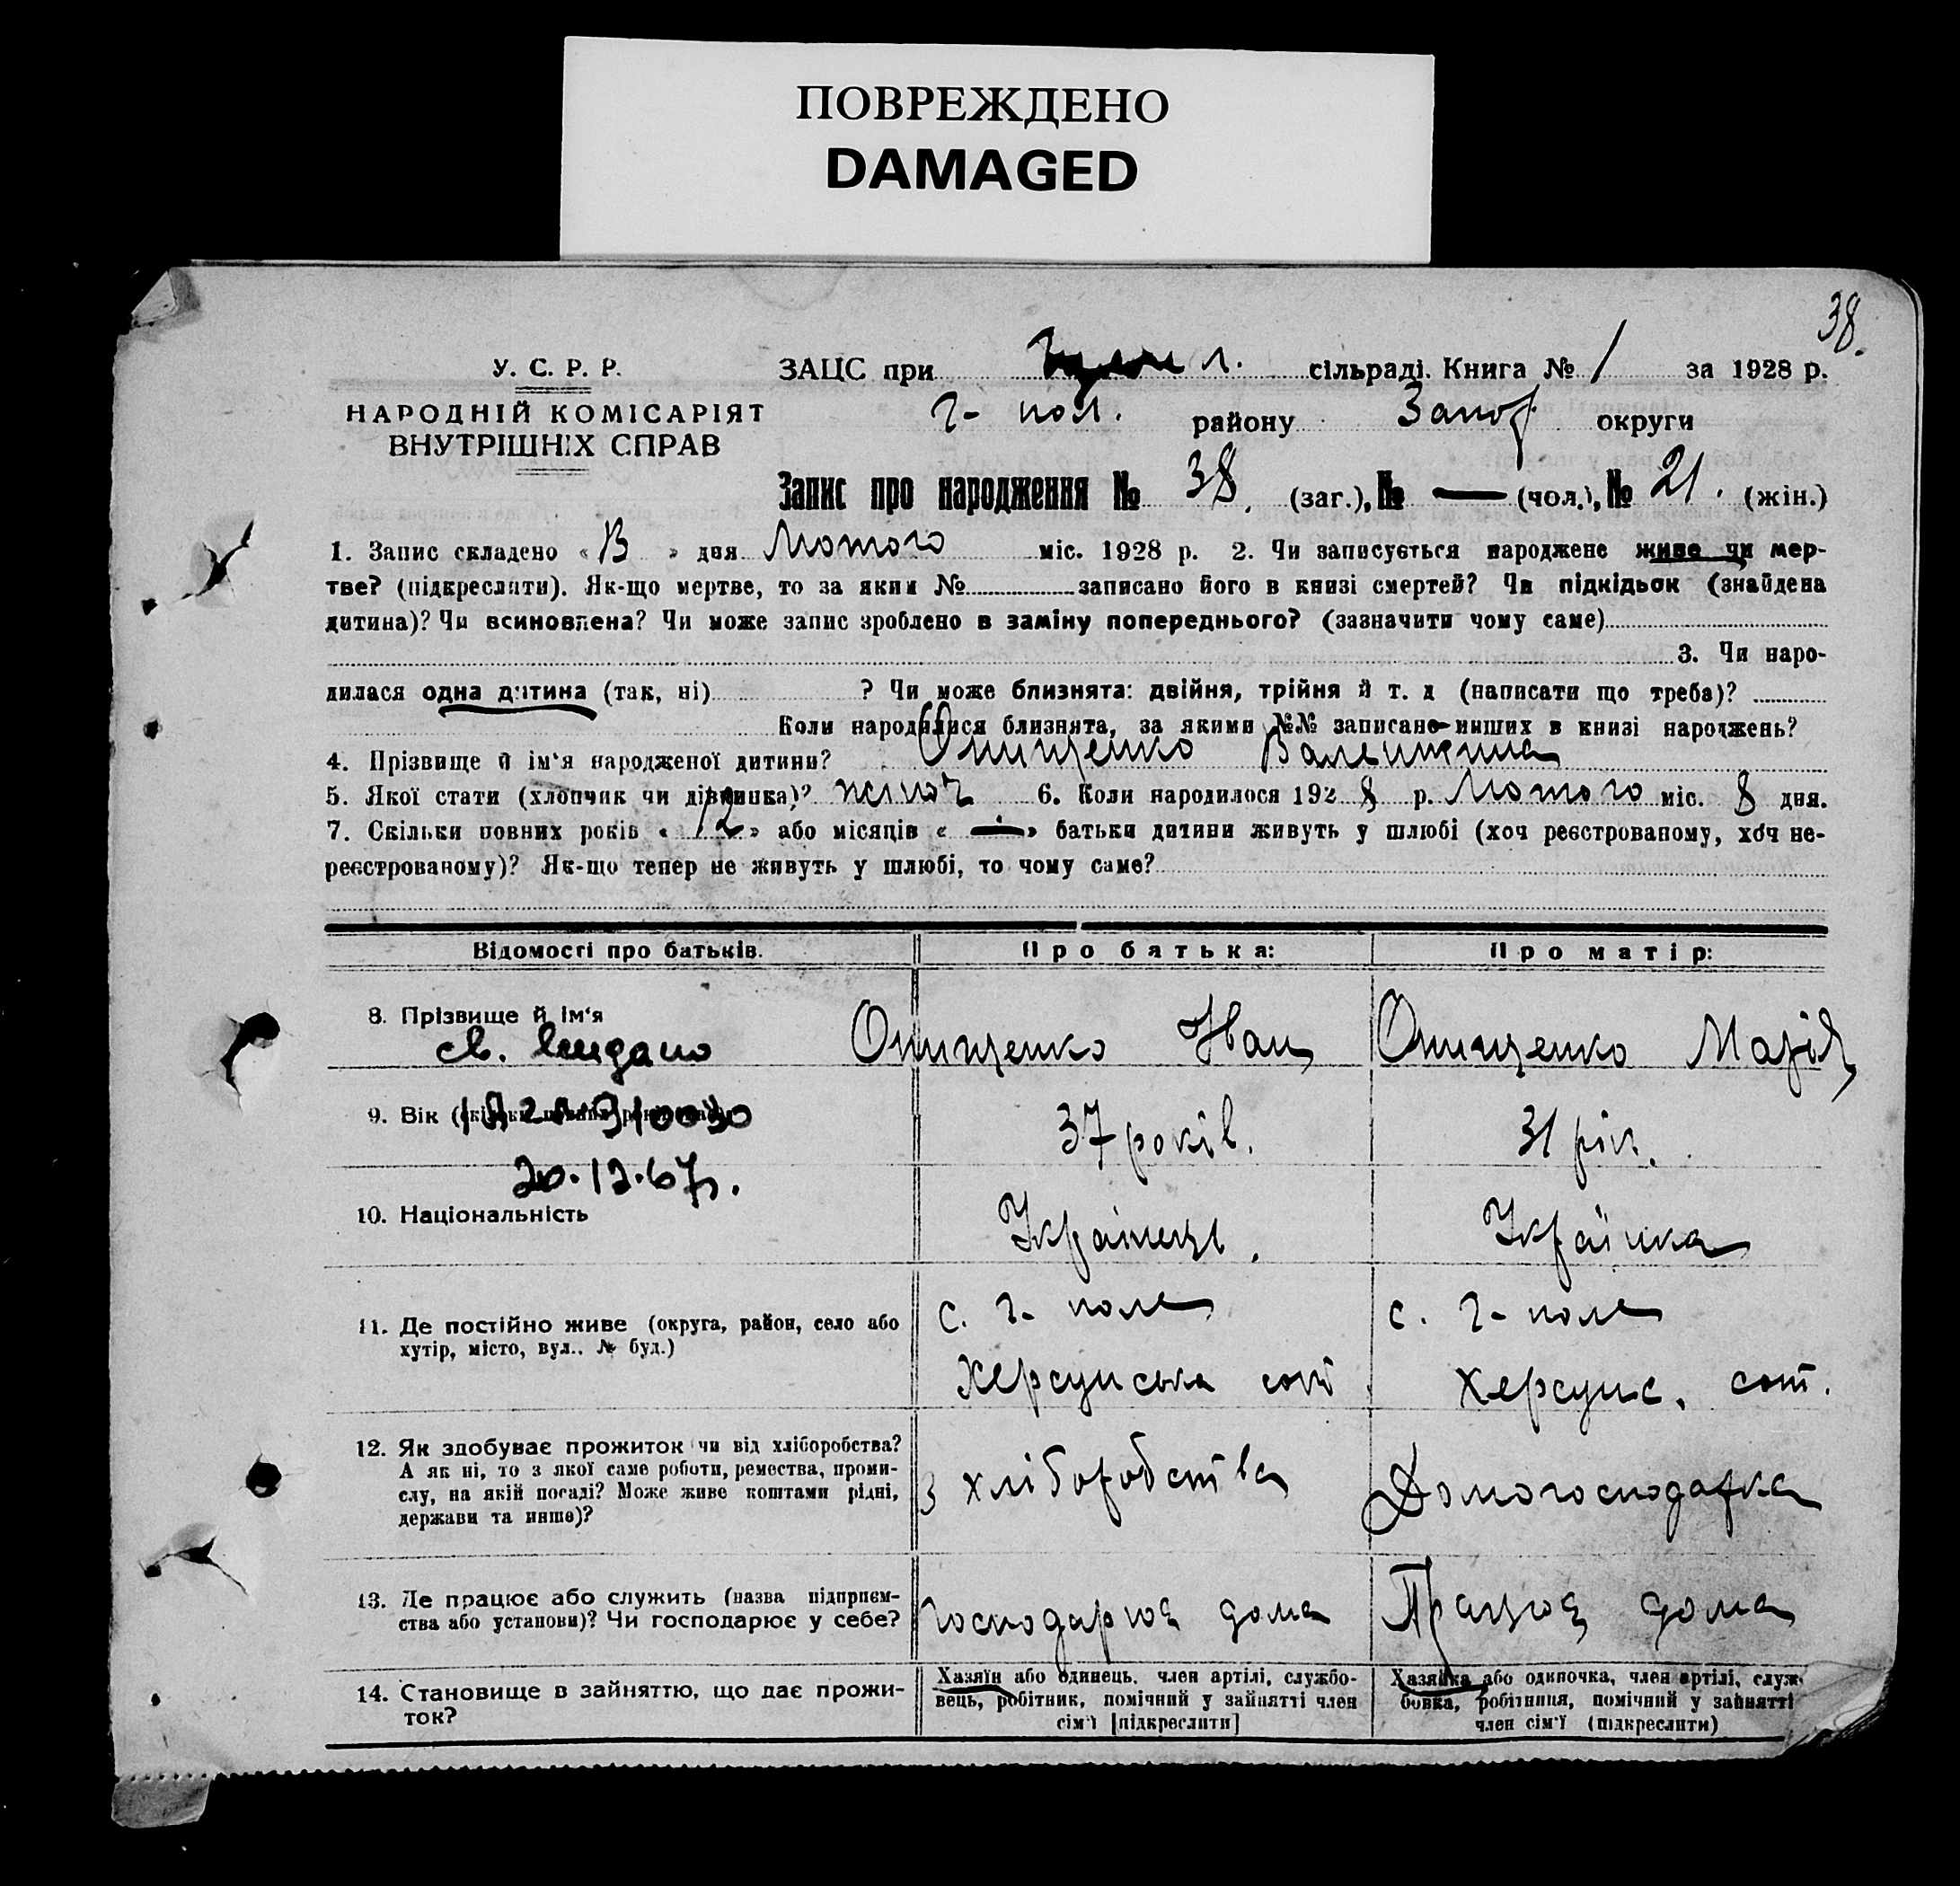 ПОВРЕЖДЕНО
DAMAGED
38.
У. С. Р. Р.
НАРОДНІЙ КОМІСАРІЯТ
ВНУТРІШНІХ СПРАВ
ЗАЦС при п. сільраді. Книга № 1 за 1928 р.
Г- пол. району Запор округи
Запис про народження № 38. (заг.), № — (чол.), № 21. (жін.)
1. Запис складено « » дня Лютого міс. 1928 р. 2. Чи записується народжене живе чи мер-
тве? (підкреслити). Як-що мертве, то за яким № записано його в книзі смертей? Чи підкідьок (знайдена
дитина)? Чи всиновлена? Чи може запис зроблено в заміну попереднього? (зазначити чому саме)
3. Чи наро-
дилася одна дитина (так, ні) ? Чи може близнята: двійня, трійня й т. д (написати що треба)?
Коли народилися близнята, за якими №№ записано инших в книзі народжень?
4. Прізвище й ім'я народженої дитини? Онищенко Валентина
5. Якої стати (хлопчик чи дівчинка)? жіноч 6. Коли народилося 1928 р. Лютого міс. 8 дня.
7. Скільки повних років « 12 » або місяців « — » батьки дитини живуть у шлюбі (хоч реєстрованому, хоч не-
реєстрованому)? Як-що тепер не живуть у шлюбі, то чому саме?
Відомості про батьків. Про батька: Про матір:
8. Прізвище й ім'я Онищенко Іван Онищенко Марія
св. видано
9. Вік 37 років. 31 рік.
20.12.67г.
10. Національність Українець. Українка
11. Де постійно живе (округа, район, село або
хутір, місто, вул.. № буд.)
с. Г- поле с. Г- поле
Херсунська сот Херсунс. сот.
12. Як здобуває прожиток чи від хліборобства?
А як ні, то з якої саме роботи, ремества, проми-
слу, на якій посаді? Може живе коштами рідні,
держави та инше)?
З хліборобства Домогосподарка
13. Де працює або служить (назва підприєм-
ства або установи)? Чи господарює у себе?
Господарює дома Працює дома
14. Становище в зайняттю, що дає прожи-
ток?
Хазяїн або одинець, член артілі, службо-
вець, робітник, помічний у зайнятті член
сім'ї [підкреслити]
Хазяйка або одиночка, член артілі, служ-
бовка, робітниця, помічний у зайнятті
член сім'ї (підкреслити)